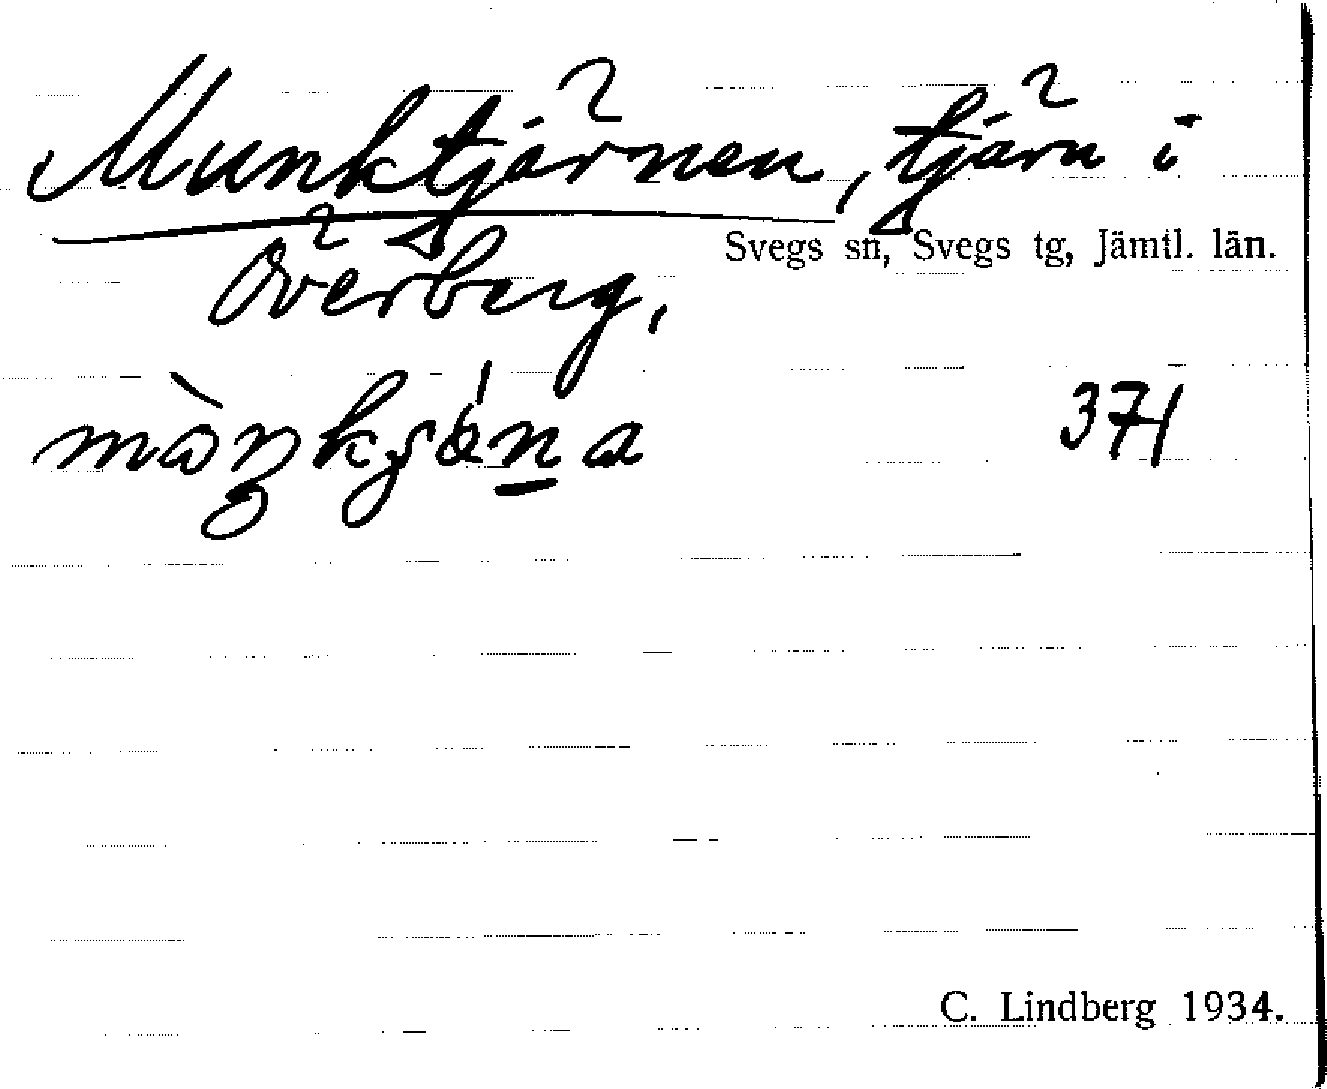 Munktjärnen, tjärn i
Svegs sn, Svegs tg, Jämtl. län.
Överberg,
371
C. Lindberg 1934.